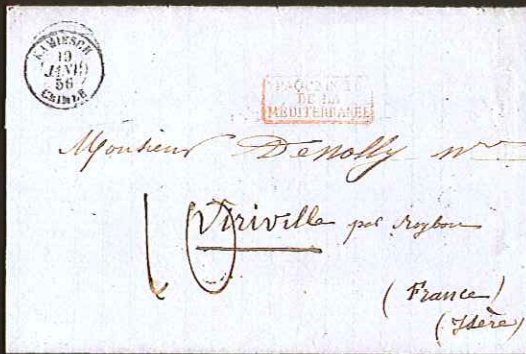 KAMIESCH
19
JANVIER
56
CRIMÉE
PAQUEBOTS
DE LA
MÉDITERRANÉE
Monsieur Denolly
Viriville par Roybon
(France)
(Isère)